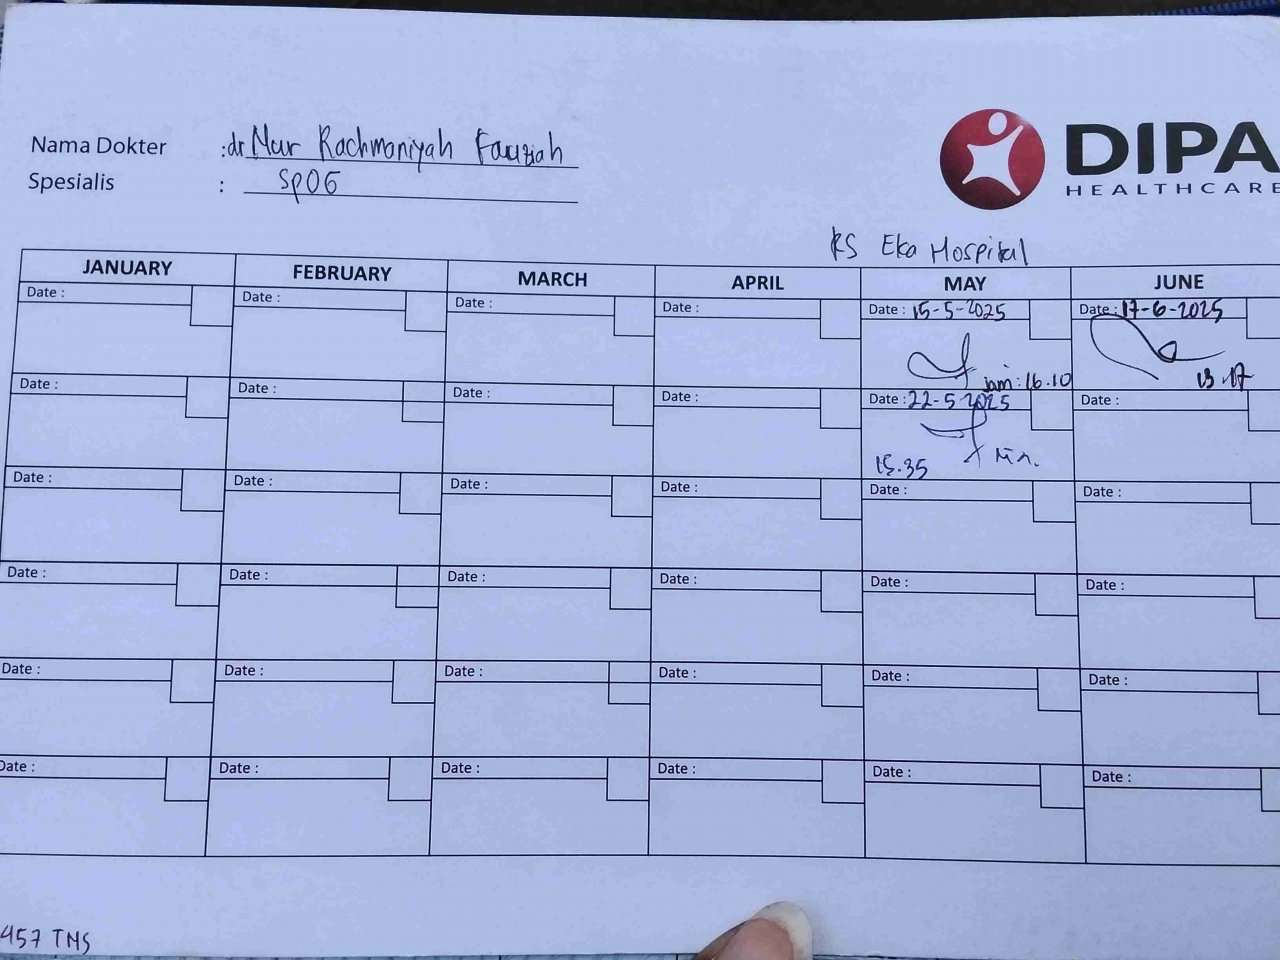 Nama Dokter : dr Nur Rachmaniyah Fauziah
Spesialis : SpOG
DIPA
HEALTHCARE
RS Eka Hospital
JANUARY FEBRUARY MARCH APRIL MAY JUNE
Date : Date : Date : Date : Date : 15-5-2025 Date : 17-6-2025
Jam : 16.10 13.17
Date : Date : Date : Date : Date : 22-5-2025 Date :
15.35
Date : Date : Date : Date : Date : Date :
Date : Date : Date : Date : Date : Date :
Date : Date : Date : Date : Date : Date :
Date : Date : Date : Date : Date : Date :
457 TMS